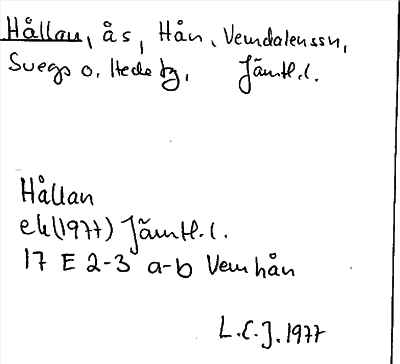 Hållan, ås, Hån, Vemdalens sn,
Svegs o. Hede tg, Jämtl. l.
Hållan
ek (1977) Jämtl. l.
17 E 2-3 a-b Vemhån
L.C.J. 1977